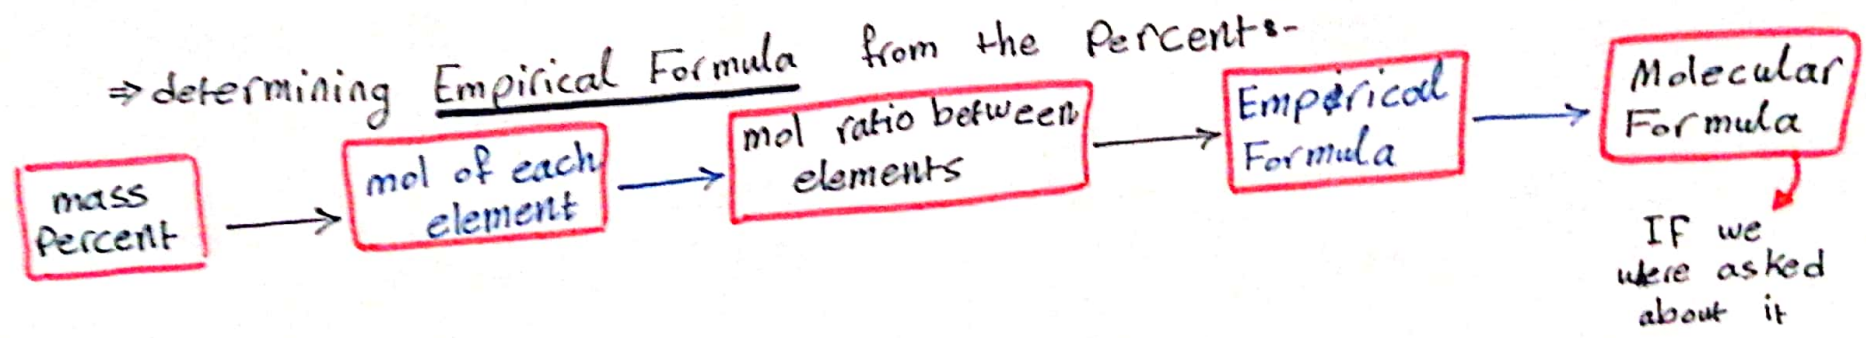 ⇒ determining Empirical Formula from the Percents:-
mass
Percent
mol of each
element
mol ratio between
elements
Empirical
Formula
Molecular
Formula
If we
were asked
about it